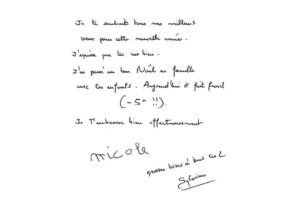 Je te souhaite tous mes meilleurs
vœux pour cette nouvelle année.
J'espère que tu vas bien.
J'ai passé un bon Noël en famille
avec les enfants. Aujourd'hui il fait froid
(-5° !!).
Je t'embrasse bien affectueusement
Nicole
grosses bises à tous les 2